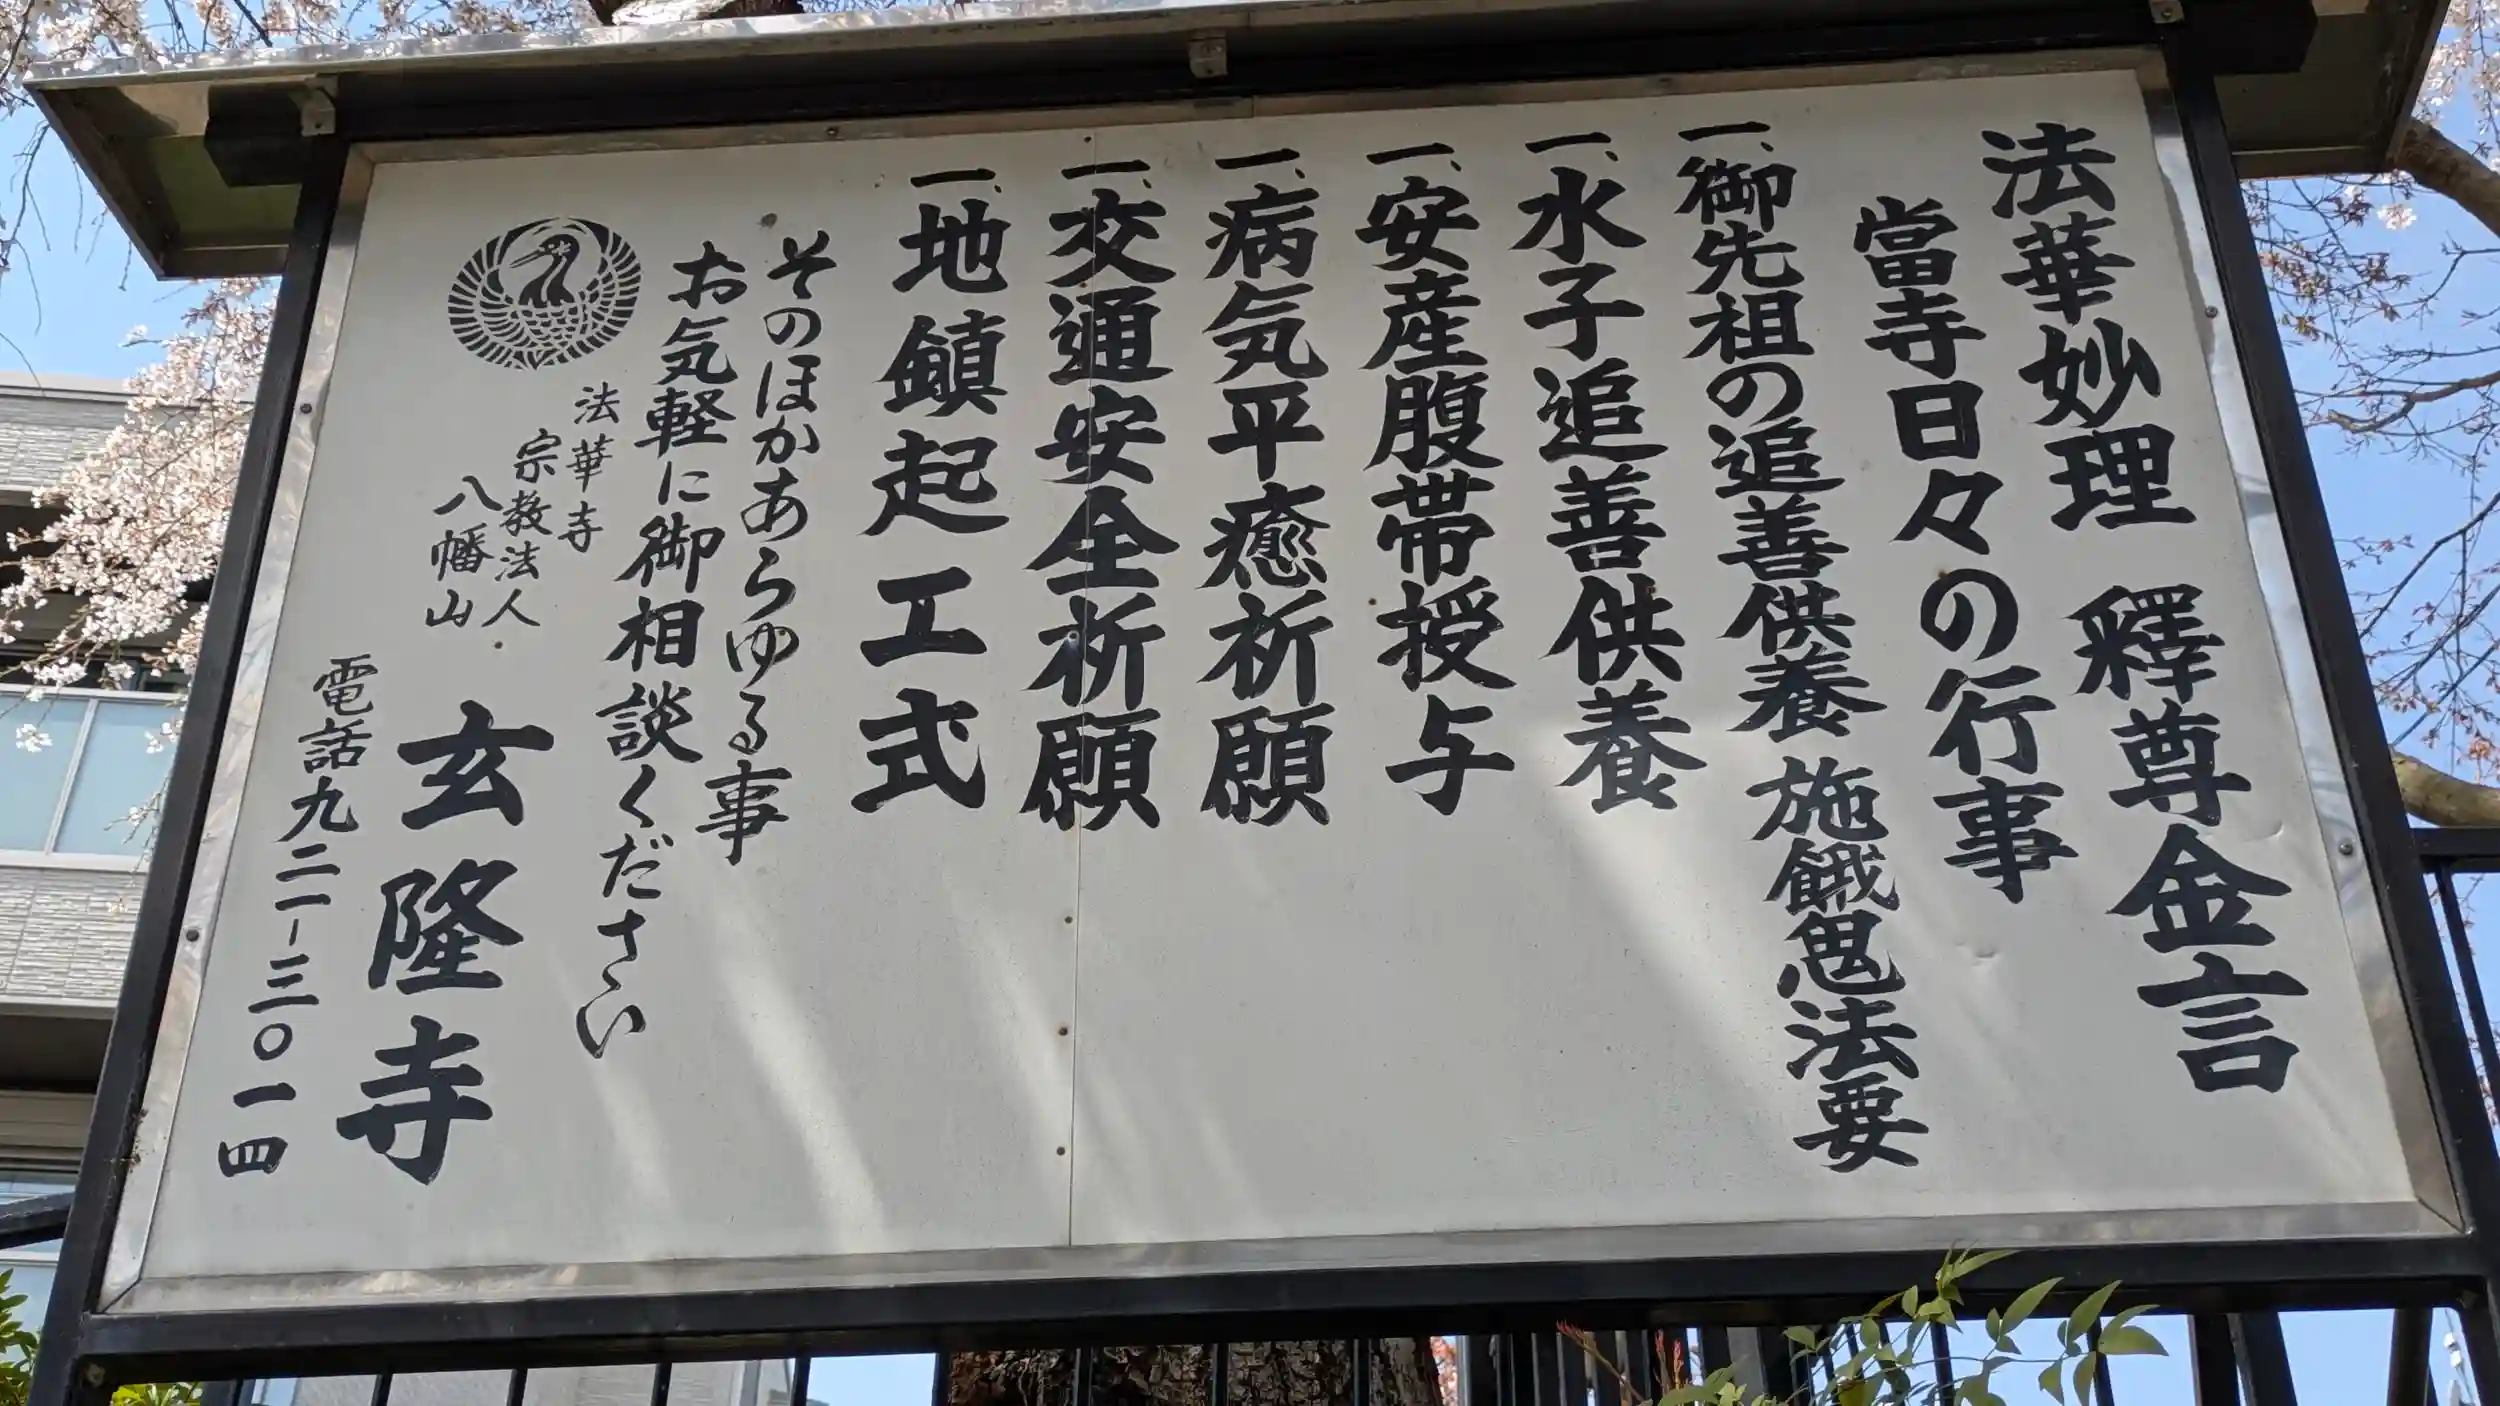 法華妙理 釋尊金言
當寺日々の行事
一、御先祖の追善供養 施餓鬼法要
一、水子追善供養
一、安産腹帯授与
一、病気平癒祈願
一、交通安全祈願
一、地鎮起工式
そのほかあらゆる事
お気軽に御相談ください
法華寺
宗教法人
八幡山
玄隆寺
電話九二一-三〇一四